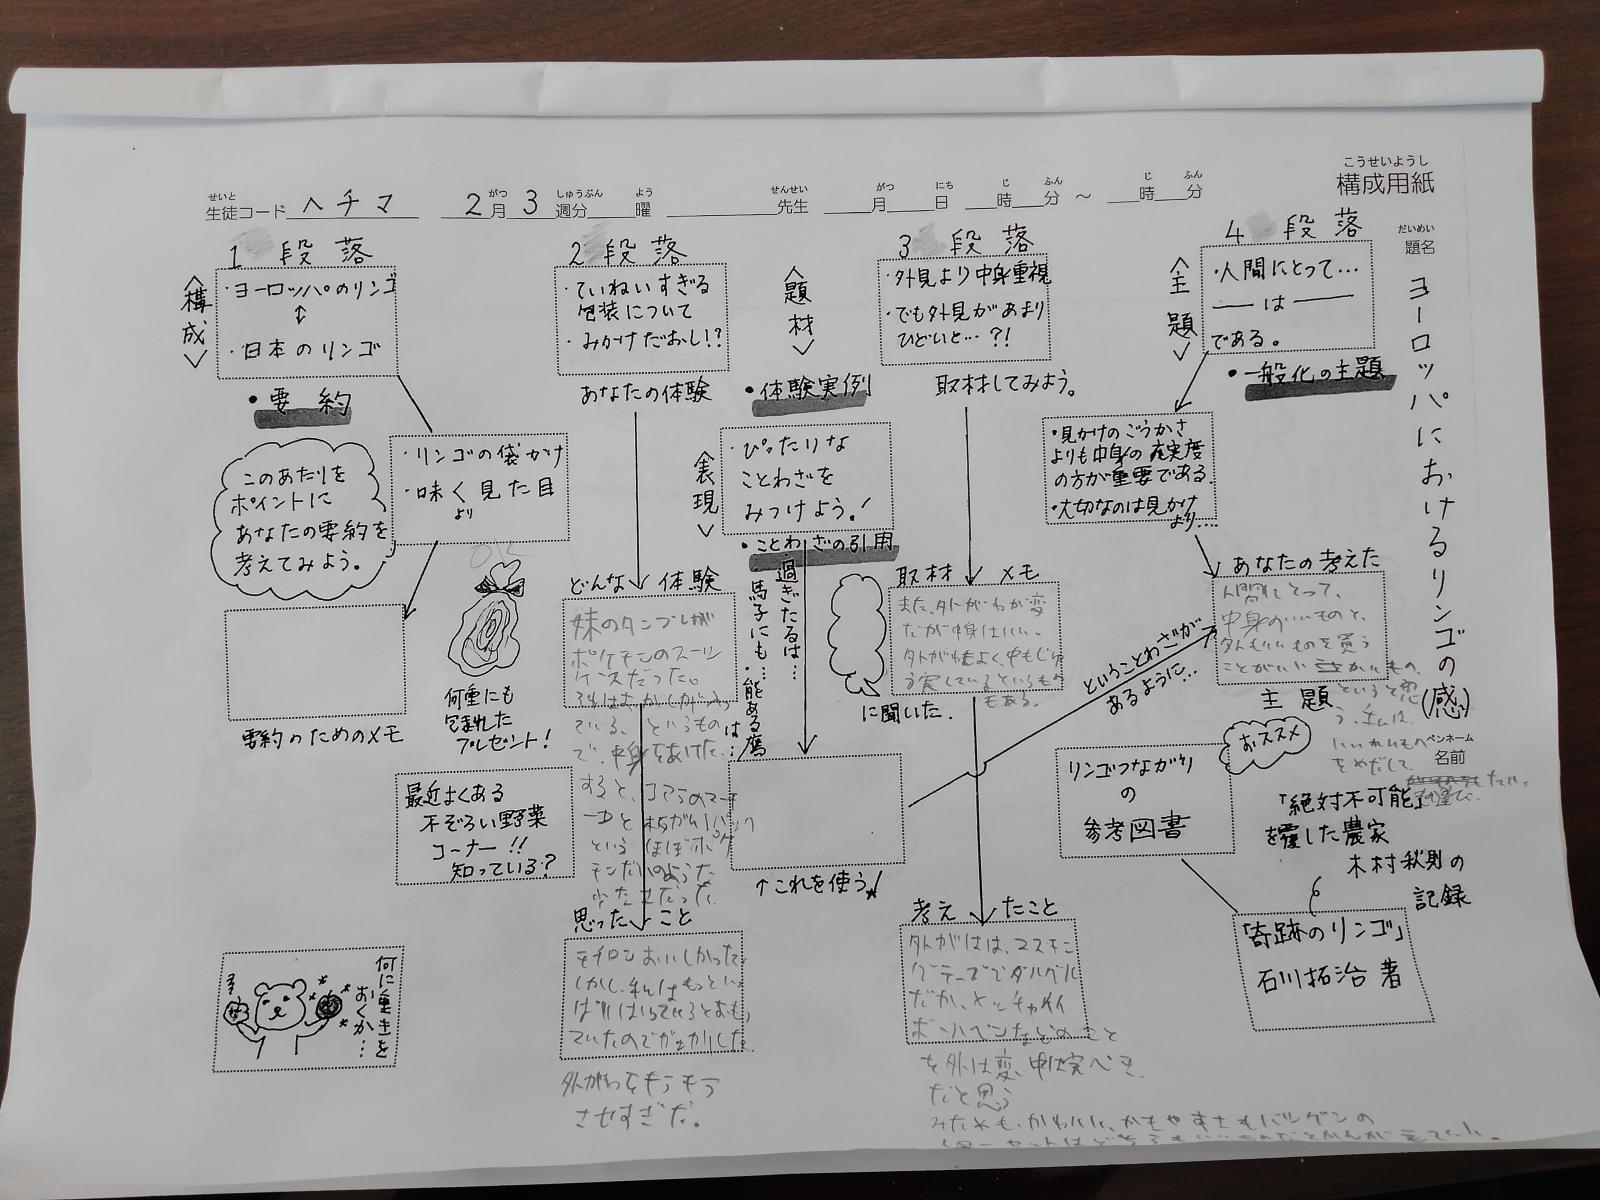 こうせいようし
構成用紙
せいと がつ しゅうぶん よう せんせい がつ にち じ ふん じ ふん
生徒コード ヘチマ 2月 3週分 曜 先生 月 日 時 分 ～ 時 分
だいめい
題名
ヨーロッパにおけるリンゴの(感)
ペンネーム
名前
1 段落
<構成>
・ヨーロッパのリンゴ
↕
・日本のリンゴ
・要約
・リンゴの袋かけ
・味く見た目
より
このあたりを
ポイントに
あなたの要約を
考えてみよう。
OK
要約のためのメモ
何重にも
包まれた
プレゼント！
最近よくある
不ぞろい野菜
コーナー!!
知っている?
何に重きを
おくか…
2 段落
・ていねいすぎる
包装について
・みかけだおし!?
あなたの体験
どんな体験
妹のタンプレがが
ポケモンのスーツ
ケースだった。
ている、というもの
で、中身をあけた。
すると、コアラのマーチ
という ほぼポケ
モンだいのような
思ったこと
モチロンおいしかった。
しかし、私はもっといえ
ばいはいっていると思っ
ていたのでがっかりした。
外がわをもうもう
させすぎだ。
<題材>
・体験実例
<表現>
・ぴったりな
ことわざを
みつけよう。！
・ことわざの引用
過ぎたるは…
・馬子にも
・能ある鷹
は…
↑これを使う！
3 段落
・外見より中身重視
・でも外見があまり
ひどいと…?!
取材してみよう。
取材メモ
また、外がわが変
だが中身はいい。
外がわもよく、中もじゅ
う実しているというもの
もある。
に聞いた.
考えたこと
だが、
ボールペンなどのこと
を外は変、中は完ぺき
だと思う
ということわざが
あるように…
4 段落
<主題>
・人間にとって…
―― は ――
である。
・一般化の主題
・見かけのごうかさ
よりも中身の充実度
の方が重要である.
・大切なのは見かけ
より…
あなたの考えた
主題
人間にとって、
中身のいいものと、
外もいいものを買う
ことがいい
というと思
う。私は、
おススメ
リンゴつながり
の
参考図書
「絶対不可能」
を覆した農家
木村秋則の
記録
「奇跡のリンゴ」
石川拓治 著